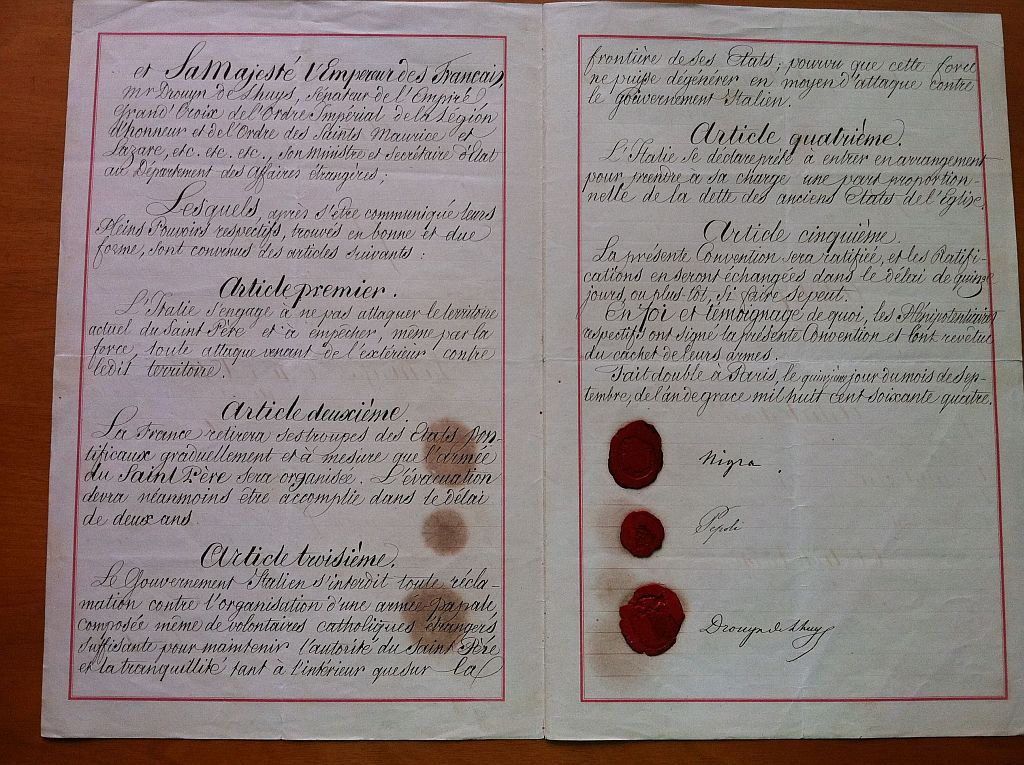 et Sa Majesté l'Empereur des Français,
Mr Drouyn de Lhuys, Sénateur de l'Empire,
Grand' Croix de l'Ordre Impérial de la Légion
d'honneur et de l'Ordre des Saints Maurice et
Lazare, etc. etc. etc., son Ministre et Secrétaire d'Etat
au Département des Affaires étrangères;
Lesquels, après s'être communiqué leurs
Pleins Pouvoirs respectifs, trouvés en bonne et due
forme, sont convenus des articles suivants :
Article premier.
L'Italie s'engage à ne pas attaquer le territoire
actuel du Saint Père et à empêcher, même par la
force, toute attaque venant de l'extérieur contre
ledit territoire.
Article deuxième.
La France retirera ses troupes des Etats pon-
tificaux graduellement et à mesure que l'armée
du Saint Père sera organisée. L'évacuation
devra néanmoins être accomplie dans le délai
de deux ans.
Article troisième.
Le Gouvernement Italien s'interdit toute récla-
mation contre l'organisation d'une armée papale
composée même de volontaires catholiques étrangers
suffisante pour maintenir l'autorité du Saint Père
et la tranquillité tant à l'intérieur que sur la
frontière de ses Etats; pourvu que cette force
ne puisse dégénérer en moyen d'attaque contre
le gouvernement Italien.
Article quatrième.
L'Italie se déclare prête à entrer en arrangement
pour prendre à sa charge une part proportion-
nelle de la dette des anciens Etats de l'Église.
Article cinquième.
La présente Convention sera ratifiée, et les Ratifi-
cations en seront échangées dans le délai de quinze
jours, ou plus tôt, si faire se peut.
En foi et témoignage de quoi, les Plénipotentiaires
respectifs ont signé la présente Convention et l'ont revêtue
du cachet de leurs armes.
Fait double à Paris, le quinzième jour du mois de Sep-
tembre, de l'an de grace mil huit cent soixante quatre.
Nigra.
Pepoli
Drouyn de Lhuys